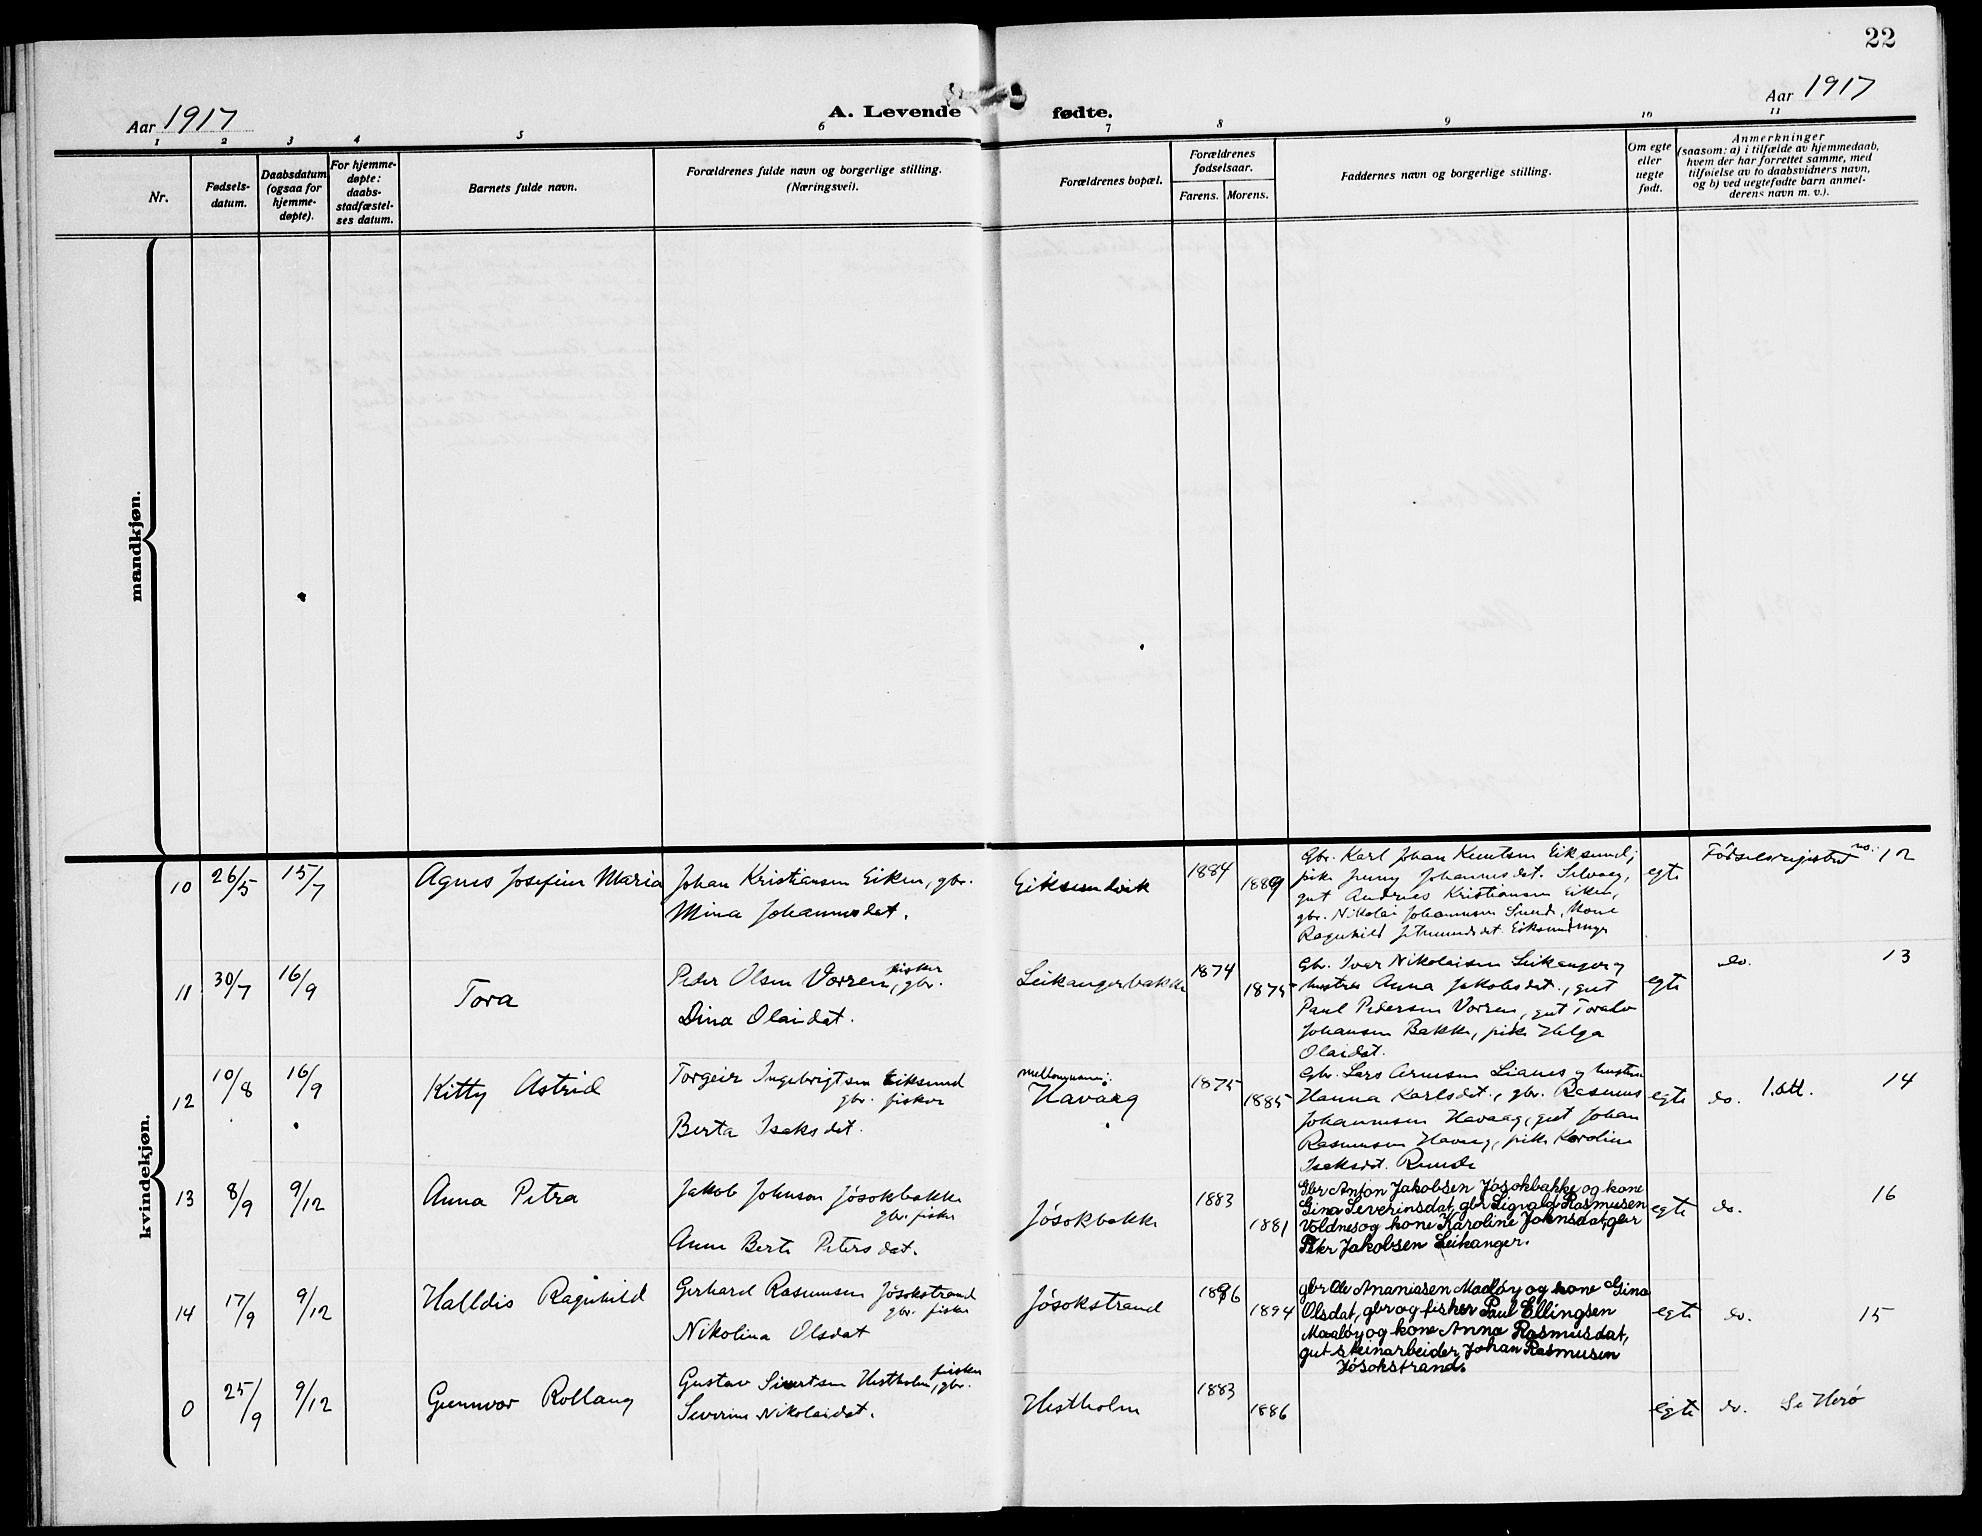 22
Aar 1917
A. Levende fødte.
Aar 1917
1 2 3 4 5 6 7 8 9 10 11
Nr.
Fødsels-
datum.
Daabsdatum
(ogsaa for
hjemme-
døpte).
For hjemme-
døpte:
daabs-
stadfæstel-
ses datum.
Barnets fulde navn.
Forældrenes fulde navn og borgerlige stilling.
(Næringsvei).
Forældrenes bopæl.
Forældrenes
fødselsaar.
Farens. Morens.
Faddernes navn og borgerlige stilling.
Om egte
eller
uegte
født.
Anmerkninger
(saasom: a) i tilfælde av hjemmedaab,
hvem der har forrettet samme, med
tilføielse av to daabsvidners navn,
og b) ved uegtefødte barn anmel-
derens navn m. v.).
mandkjøn.
kvindekjøn.
10 26/5 15/7 Agnes Josefine Maria
Johan Kristiansen Eiken, gbr.
Mina Johannesdat.
Eiksundvik
1884
1889
Gbr. Karl Johan Knutsen Eiksund,
pike Jenny Johannesdat. Selvaag,
gut Andreas Kristiansen Eiken,
gbr. Nikolai Johannsen Sund, kone
Ragnhild
egte
Fødselsregistret no. 12
11 30/7 16/9 Tora
Peder Olsen Vorren, fisker, gbr.
Dina Olaidat.
Leikangerbakke
1874
1875
Gbr. Ivar Nikolaisen Leikanger og
hustru Anna Jakobsdat., gut
Paul Pedersen Vorren, gut Toralv
Johansen Bakke, pike Helga
Olaidat.
egte
do. 13
12 10/8 16/9 Kitty Astrid
Torgeir Ingebrigtsen Eiksund
gbr. fisker
Berta Isaksdat.
Havaag
1875
1885
Gbr. Lars Arnesen Lianes og hustru
Hanna Karlsdat., gbr. Rasmus
Johannesen Havaag, gut Johan
Rasmussen Havaag, pike Karoline
Isaksdat. Runde
egte
do. 1. att. 14
13 8/9 9/12 Anna Petra
Jakob Johnson Jøsokbakke
gbr. fisker
Anne Berte Petersdat.
Jøsokbakke
1883
1881
Gbr Anton Jakobsen Jøsokbakke og kone
Gina Severinsdat, gbr Sigvald Rasmusen
Voldnes og kone Karoline Johnsdat, gbr
Petter Jakobsen Leikanger.
egte
do. 16
14 17/9 9/12 Halldis Ragnhild
Gerhard Rasmusen Jøsokstrand
gbr. fisker
Nikolina Olsdat
Jøsokstrand
1896
1894
gbr Ole Ananiasen Maaløy og kone Gina
Olsdat, gbr og fisker Paul Ellingsen
Maaløy og kone Anna Rasmusdat,
gut steinarbeider Johan Rasmusen
Jøsokstrand.
egte
do. 15
0 25/9 9/12 Gunnvor Rollaug
Gustav Sivertsen Hestholm, fisker, gbr.
Severine Nikolaidat.
Hestholm
1883
1886
egte
do. Se Herø